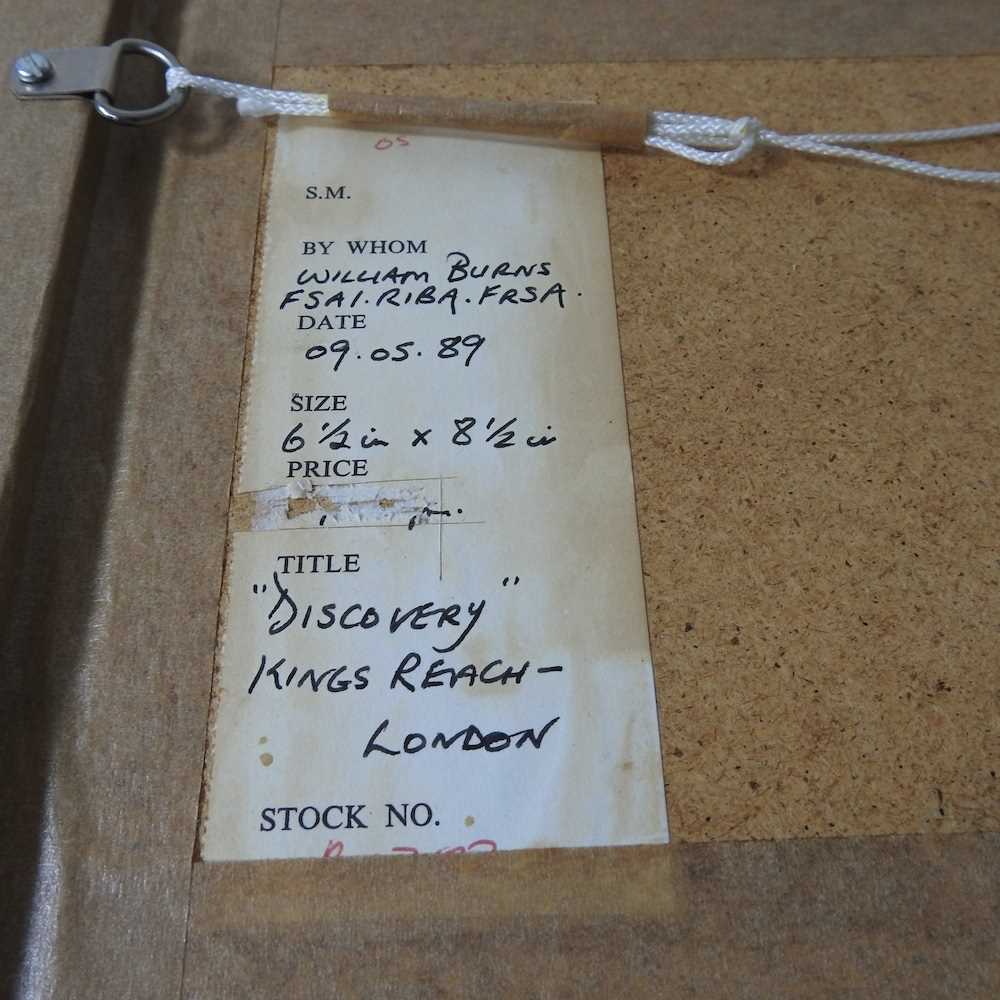 05
S.M.
BY WHOM
WILLIAM BURNS
FSAI. RIBA. FRSA.
DATE
09.05.89
SIZE
6 1/2 in x 8 1/2 in
PRICE
TITLE
"DISCOVERY"
KINGS REACH -
LONDON
STOCK NO.